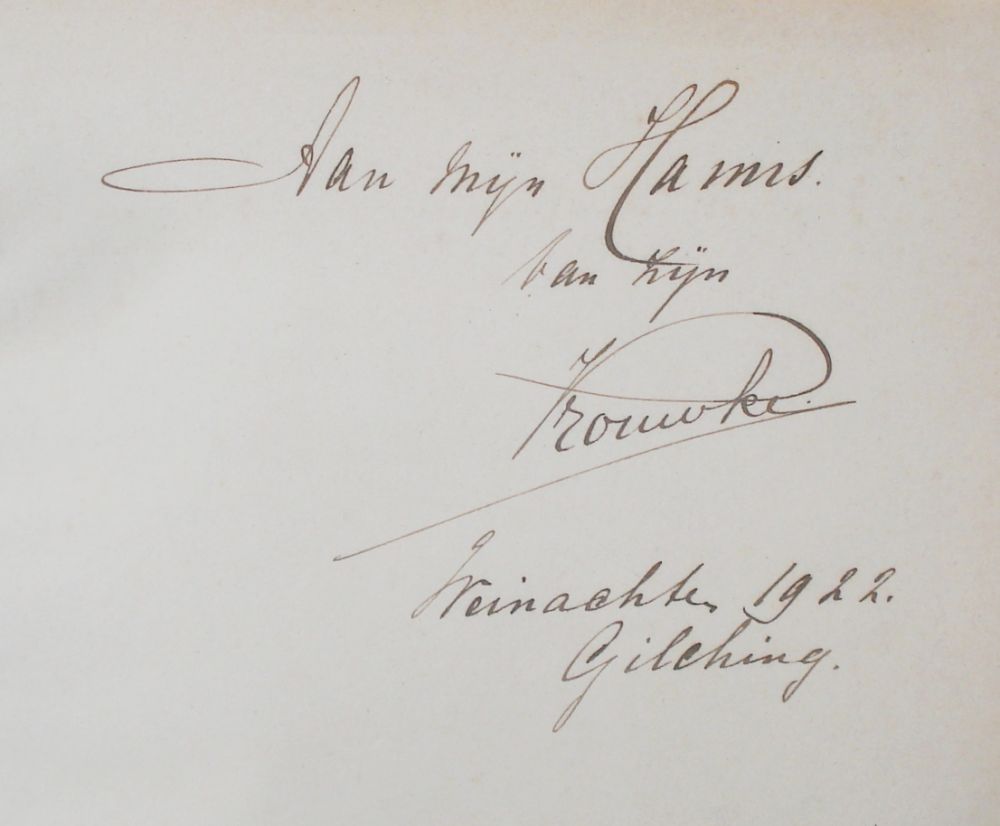 Aan mijn Hanns.
van zijn
Vrouwke.
Weinachten 1922.
Gilching.